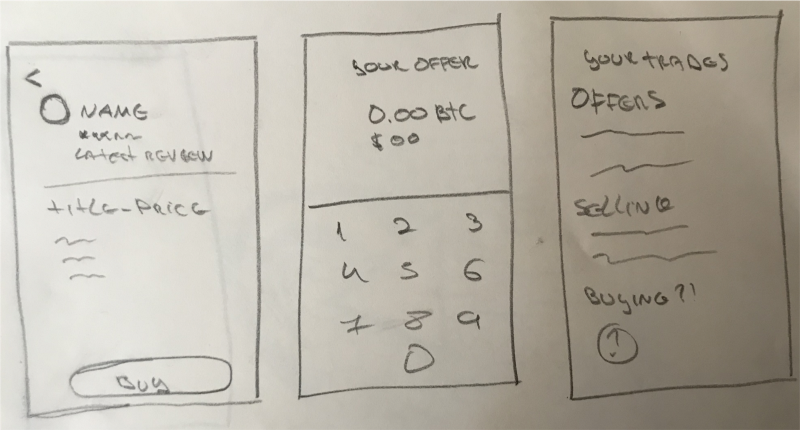 <
NAME
LATEST REVIEW
TITLE-PRICE
BUY
YOUR OFFER
0.00 BTC
$00
1 2 3
4 5 6
7 8 9
0
YOUR TRADES
OFFERS
SELLING
BUYING?!
!